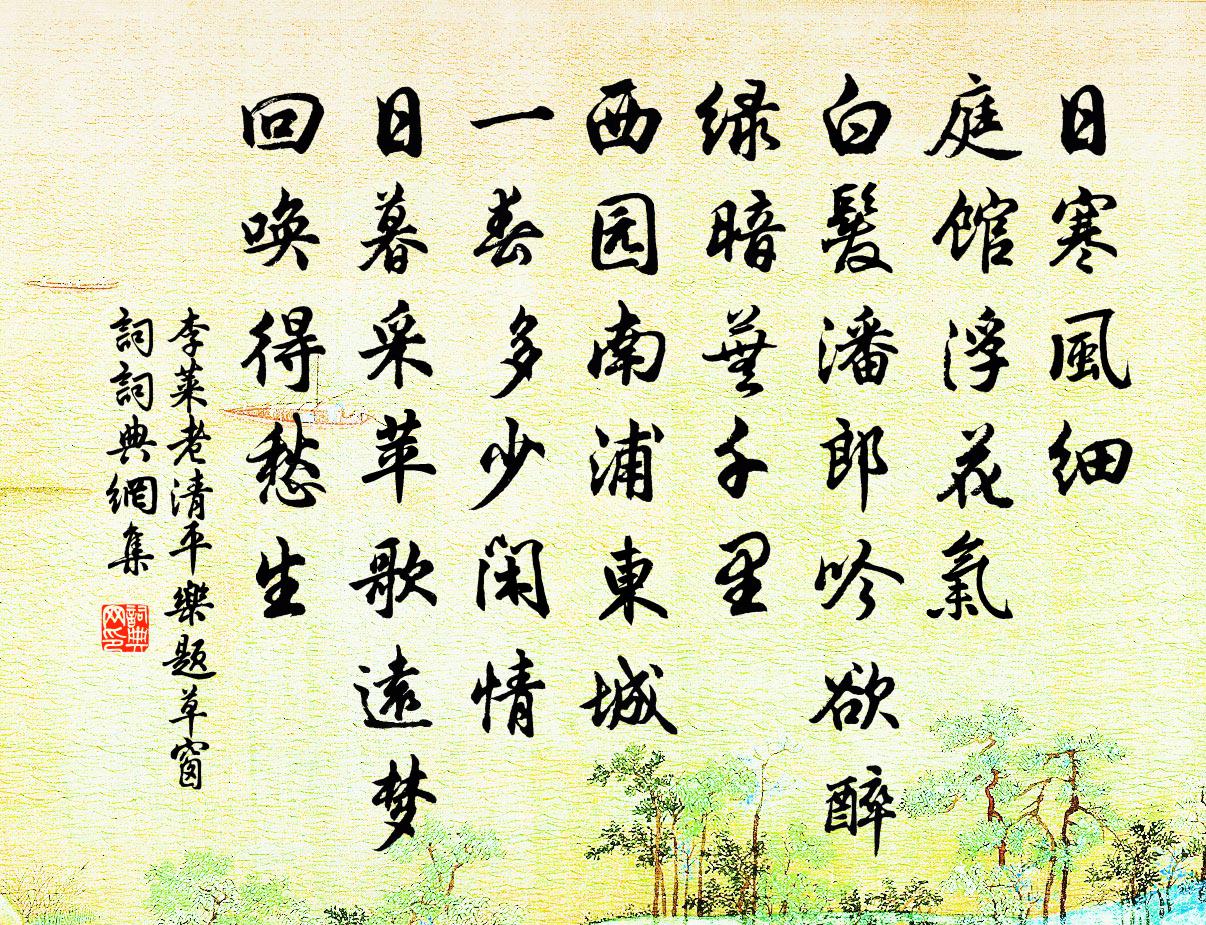 日寒風細
庭館浮花氣
白髮潘郎吟欲醉
绿暗蘼千里
西园南浦東城
一春多少闲情
日暮采苹歌遠梦
回唤得愁生
李莱老清平樂题草窗
詞詞典網集
詞典网印